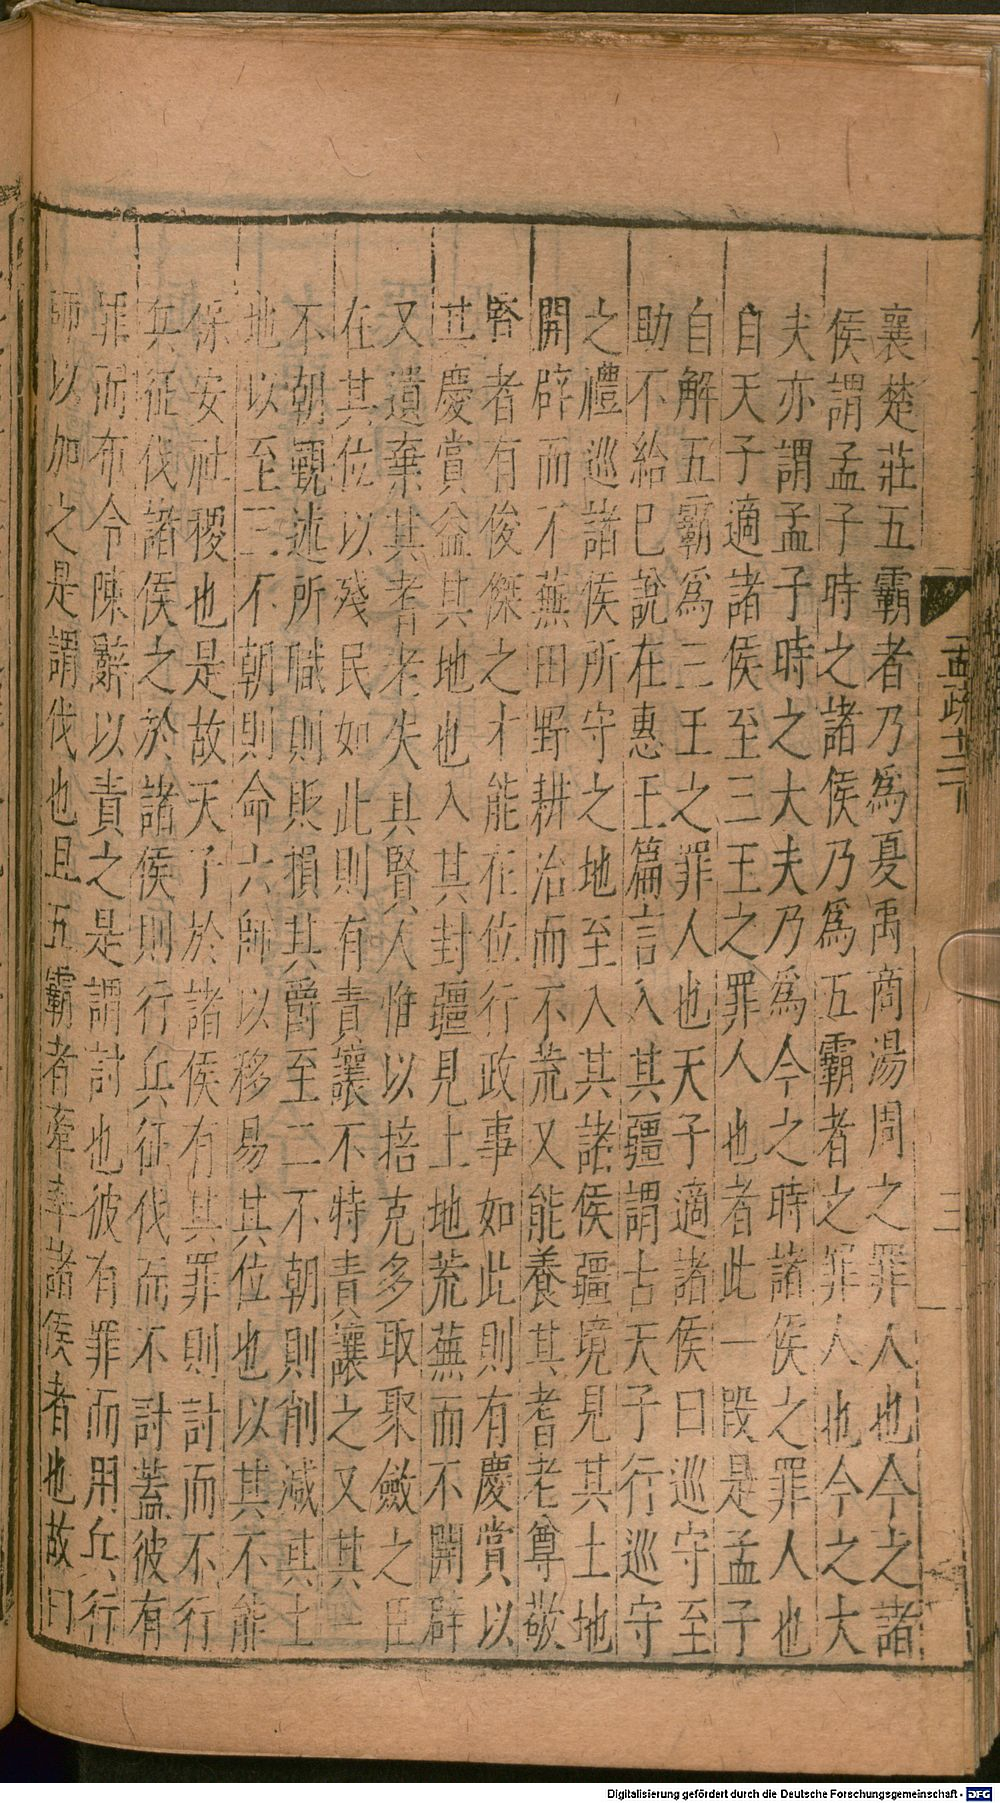 襄楚莊五霸者乃爲夏禹商湯周之罪人也今之諸
侯謂孟子時之諸侯乃爲五霸者之罪人也今之大
夫亦謂孟子時之大夫乃爲今之時諸侯之罪人也
自天子適諸侯至三王之罪人也者此一段是孟子
自解五霸爲三王之罪人也天子適諸侯曰巡守至
助不給巳說在惠王篇言入其疆謂古天子行巡守
之禮巡諸侯所守之地至入其諸侯疆境見其土地
開辟而不蕪田野耕治而不荒又能養其耆老尊敬
賢者有俊傑之才能在位行政事如此則有慶賞以
其慶賞益其地也入其封疆見土地荒蕪而不開辟
又遺棄其耆老失其賢人惟以掊克多取聚斂之臣
在其位以殘民如此則有責讓不特責讓之又其一
不朝覲述所職則貶損其爵至二不朝則削減其土
地以至三不朝則命六師以移易其位也以其不能
保安社稷也是故天子於諸侯有其罪則討而不行
兵征伐諸侯之於諸侯則行兵征伐而不討蓋彼有
罪而布令陳辭以責之是謂討也彼有罪而用兵行
師以加之是謂伐也且五霸者牽率諸侯者也故曰
孟疏十二下
三
Digitalisierung gefördert durch die Deutsche Forschungsgemeinschaft - DFG